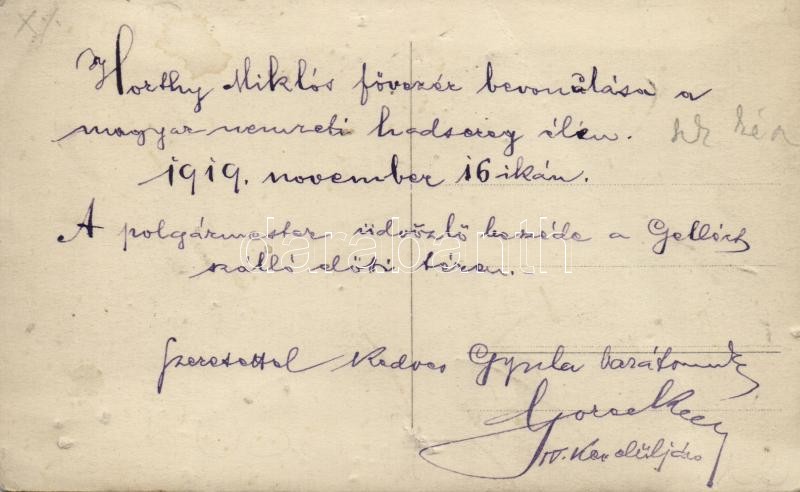 Horthy Miklós fővezér bevonúlása a
magyar nemzeti hadsereg élén.
1919. november 16 ikán.
A polgármester üdvözlő beszéde a Gellért
szálló előtti téren.
Szeretettel kedves Gyula barátomnak
darabanth